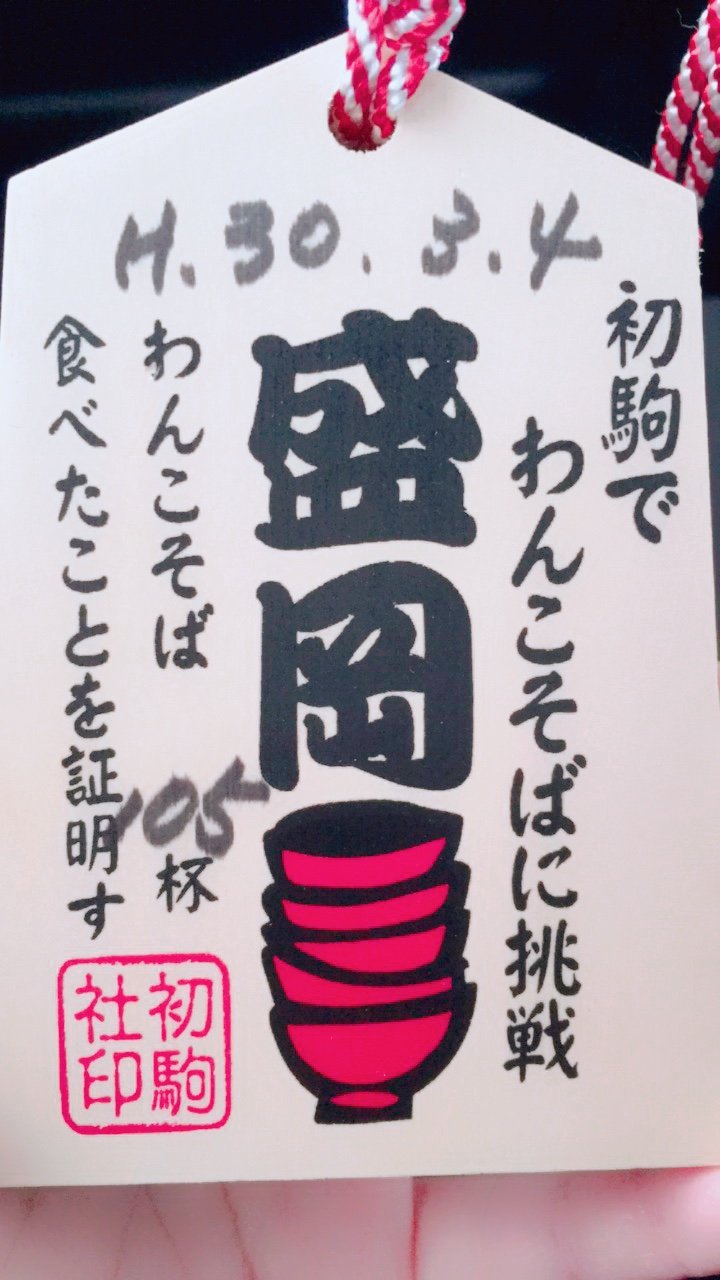 H.30.3.4
初駒で
わんこそばに挑戦
盛岡
わんこそば 105杯
食べたことを証明す
初駒
社印